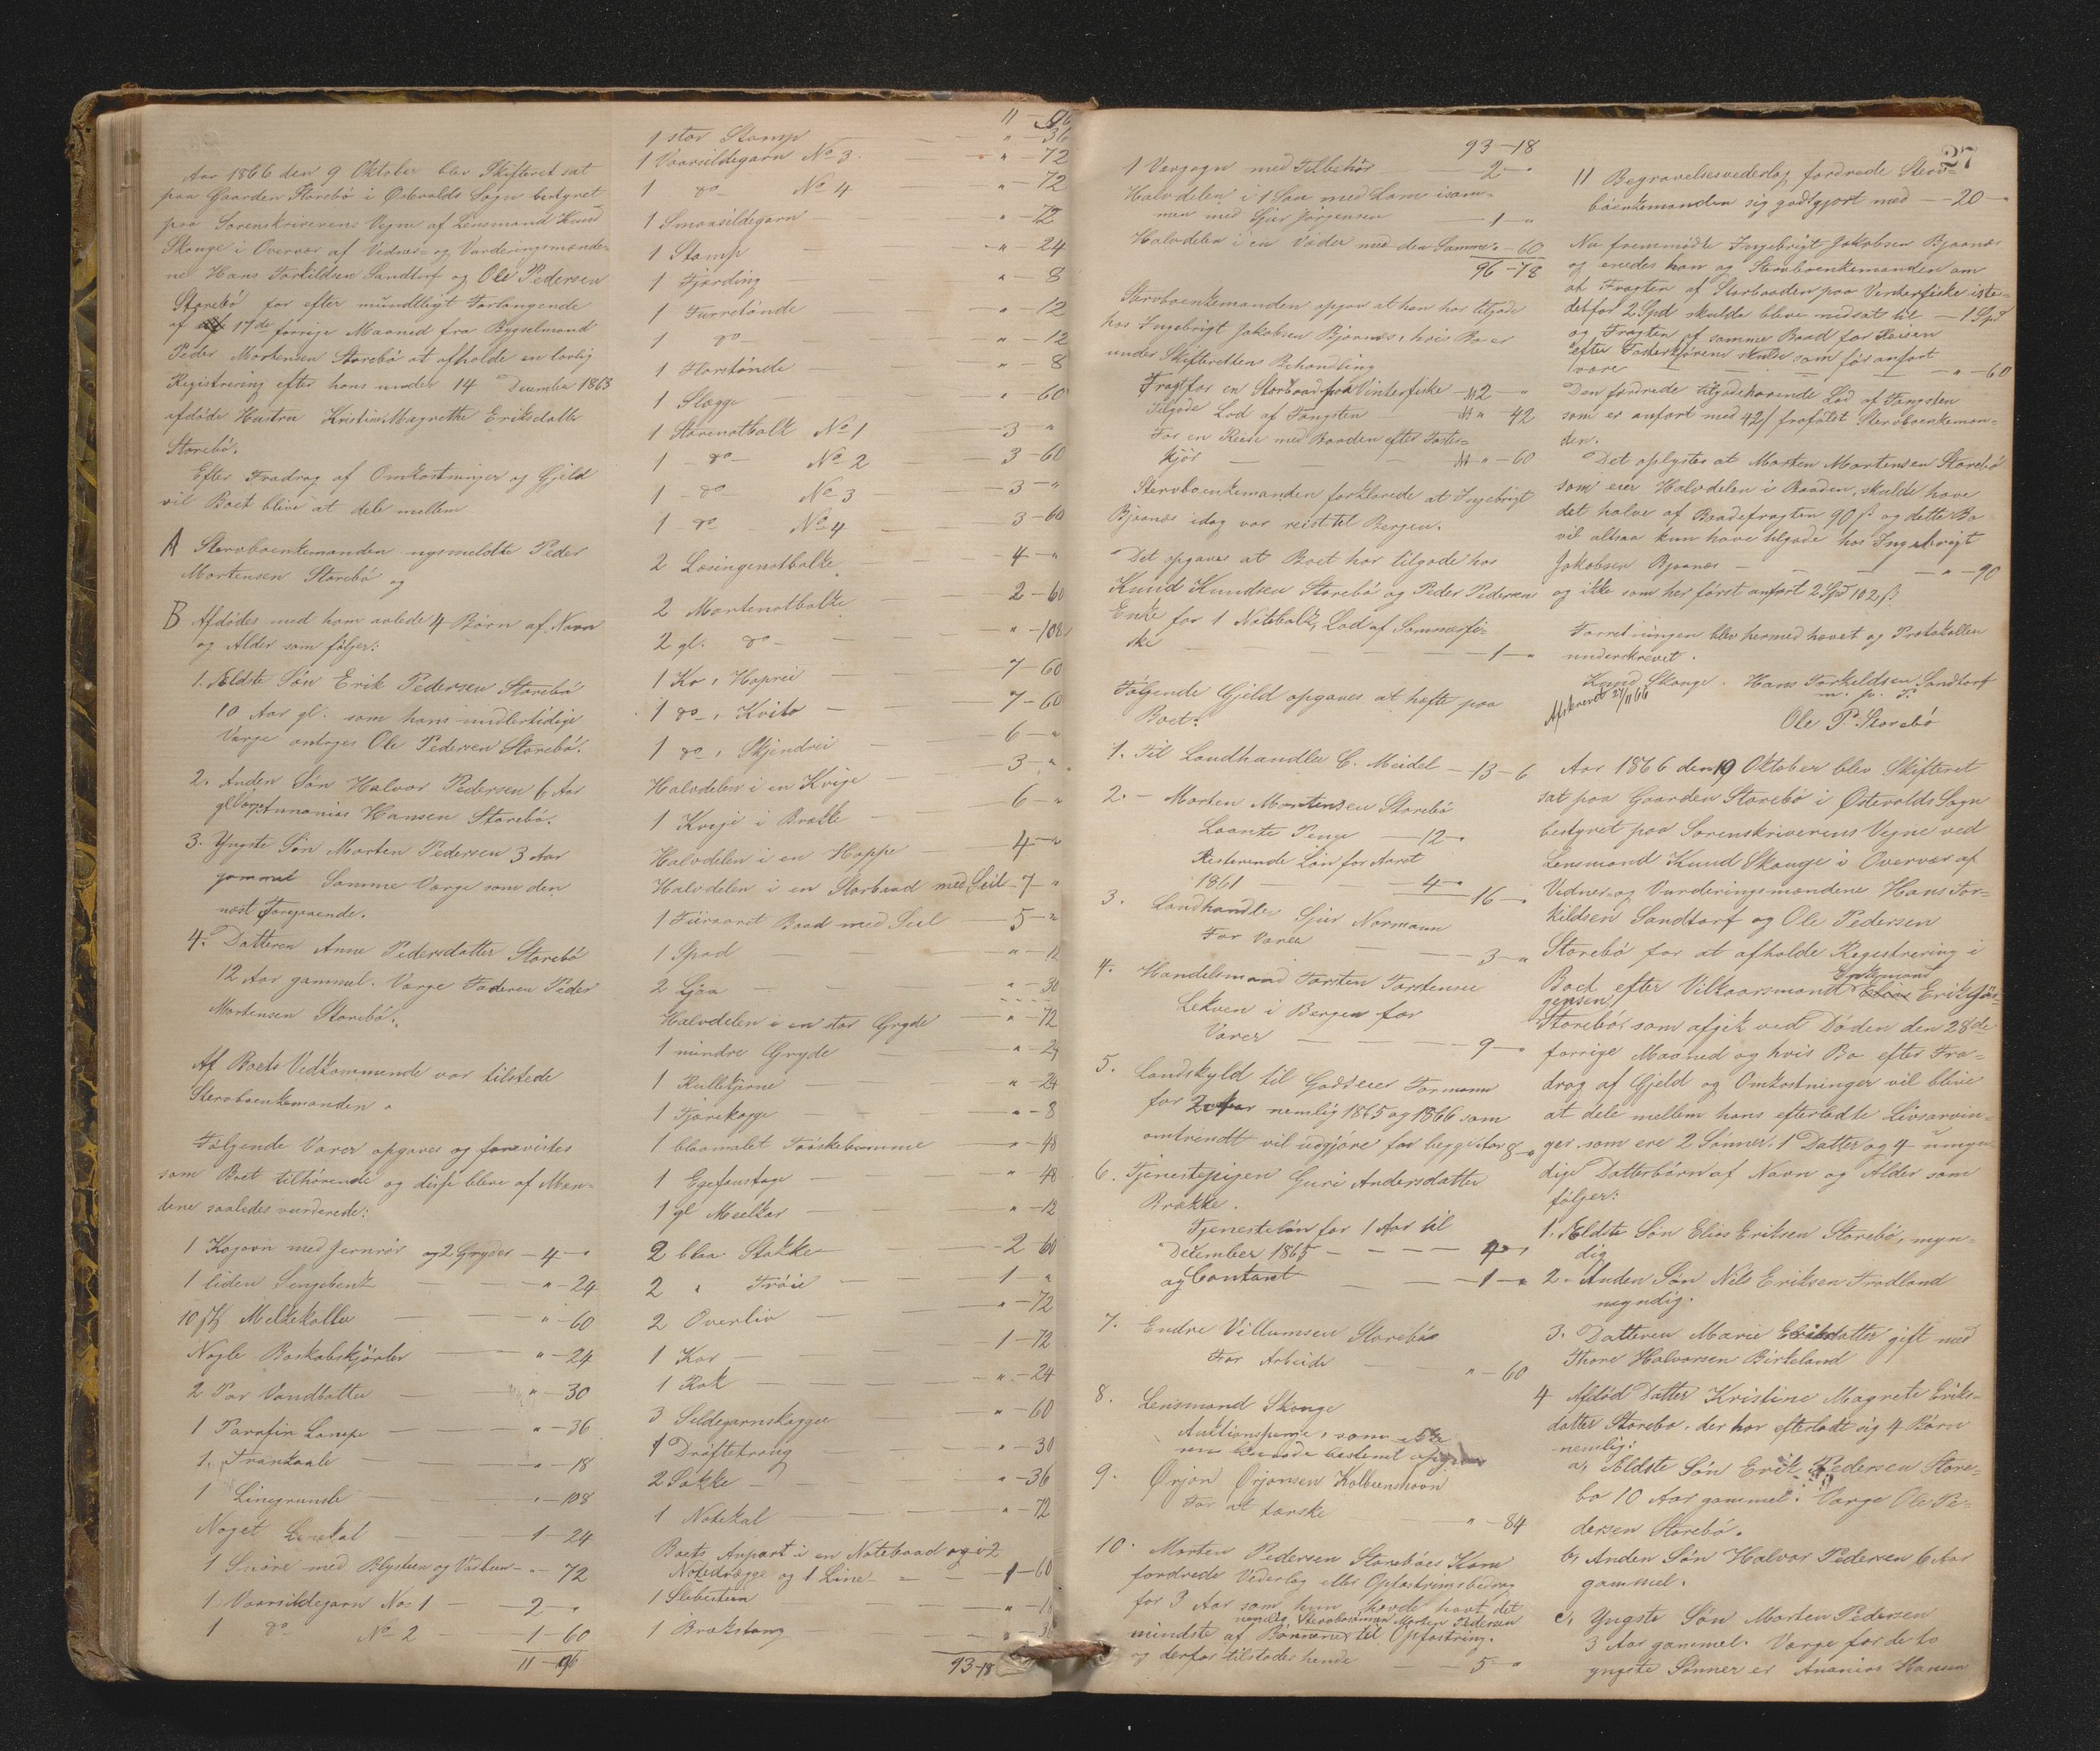 Aar 1866 den 9 Oktober blev Skifteret sat
paa Gaarden Storebö i Östevolds Sogn bestyret
paa Sorenskriverens Vegne af Lensmand Knud
Skauge i Overvær af Vidner- og Vurderingsmænde-
ne Hans Torkildsen Sandtorf og Ole Pedersen
Storebö for efter mundtligt Forlangende
af 17de forrige Maaned fra Bygselmand
Peder Mortensen Storebö at afholde en lovlig
Registrering efter hans under 14 December 1863
afdöde Hustru Kristine Magrethe Eriksdatter
Storebö.
Efter Fradrag af Omkostninger og Gjeld
vil Boet blive at dele mellem
A Stervboenkemanden nysmeldte Peder
Mortensen Storebö og
B Afdödes med ham avlede 4 Börn af Navn
og Alder som fölger:
1. Ældste Sön Erik Pedersen Storebö
10 Aar gl: som hans midlertidige
Værge antoges Ole Pedersen Storebö.
2. Anden Sön Halvor Pedersen 6 Aar
gl Værge Annanias Hansen Storebö.
3. Yngste Sön Morten Pedersen 3 Aar
gammel Samme Værge som den
næst Foregaaende.
4. Datteren Anne Pedersdatter Storebö
12 Aar gammel. Værge Faderen Peder
Mortensen Storebö.
Af Boets Vedkommende var tilstede
Stervboenkemanden.
Følgende Varer opgaves og forevistes
som Boet tilhørende og disse bleve af Mæn-
dene saaledes vurderede:
1 Kogovn med Jernrör og 2 Gryder - 4 - "
1 liden Sengebenk " - 24
10 St Melkekoller " - 60
Nogle Boskabskjörler " - 24
2 Par Vandbötter " - 30
1 Parafin Lampe " - 36
1. Trankoale " - 18
1 Linegrunde " - 108
Noget 1 - 24
1 Snöre med Blysteen og - " - 72
1 Vaarsildegarn No 1 - 2 - "
1 do No 2 - 1 - 60
11 - 96
11 - 96
1 stor Stamp " - 36
1 Vaarsildegarn No 3. " - 72
1 do No 4 " - 72
1 Smaasildegarn " - 72
1 Stamp " - 24
1 Fjerding " - 8
1 Furretönde " - 12
1 do " - 12
1 Flortönde " - 8
1 Slægge " - 60
1 Storenotbolk No 1 - 3 - "
1 - do - No 2 - 3 - 60
1 - do No 3 - 3 - "
1 - do No 4 - 3 - 60
2 Losingenotbolke - 4 - "
2 Mortenotbolke - 2 - 60
2 gl: do - " - 108
1 Ko, Haprei - 7 - 60
1 do, Kvito - 7 - 60
1 do, Skjendrei - 6 - "
Halvdelen i en Kvige - 3 - "
1 Kvige i Brække - 6 - "
Halvdelen i en Hoppe - 4 - "
Halvdelen i en Storbaad med Seil - 7 - "
1 Fiiraaret Baad med Seil - 5 - "
1 Spad " - 12
2 Ljaa " - 30
Halvdelen i en stor Gryde " - 72
1 mindre Gryde " - 24
1 Rullekjerne " - 24
1 Tjærekagge " - 8
1 blaamalet " - 48
1 Egefoustage " - 48
1 gl Meelkar " - 12
2 blaa Stakke 2 60
2 " Tröie 1 - "
2 Overliv " - 72
1 Kar 1 - 72
1 Rok " - 24
3 Sildegarnskagger " - 60
1 Dröftetroug " - 30
2 Sække " - 36
1 Notekal " - 72
Boets Anpart i en Notebaad og i 2
Notedrægge og 1 Line - 1 - 60
1 Slibesteen
1 Brækstang
93 - 18
93 - 18
1 Vevgogn med Tilbehör - 2 - "
Halvdelen i 1 Sau med Lam isam-
men med Sjur Jörgensen - 1 - "
Halvdelen i en Væder med den Samme " - 60
96 - 78
Stervboenkemanden opgav at han har tilgode
hos Ingebrigt Jakobsen Bjaanæs, hvis Bo er
under Skifterettens Behandling
Fragt for en Storbaad fra Vinterfiske - 2 - "
Tilgode Lod af Fangsten " - 42
For en Reise med Baaden efter Foster-
kjör " - 60
Stervboenkemanden forklarede at Ingebrigt
Bjaanæs idag var reist til Bergen.
Det opgaves at Boet har tilgode hos
Knud Knudsen Storebö og Peder Pedersen
Enke for 1 Notebolk, Lod af Sommerfi-
ske - 1 - "
Følgende Gjeld opgaves at hefte paa
Boet:
1. Til Landhandler C. Meidel - 13 - 6
2. - Morten Mortensen Storebö
Laante Penge - 12 - "
Resterende Lön for Aaret
1861 - 4 - " - 16 - "
3. Landhandler Sjur Normann
For Varer - 3 - "
4. Handelsmand Torsten Torstensen
Lekven i Bergen for
Varer - 9 - "
5. Landskyld til Godseier Formann
for 2 Aar nemlig 1865 og 1866 som
omtrendt vil udgjöre for begge Aar 8 - "
6. Tjenestepigen Guri Andersdatter
Brække.
Tjenestelön for 1 Aar til
December 1865 - 4 - "
og Contant - 1 - "
7. Endre Villumsen Storebö
For Arbeide " - 60
8. Lensmand Skauge
Auktionspenge, som ikke
nu bestemt
9. Örjan Örjansen Kolbeenshavn
For at tærske " - 84
10. Morten Pedersen Storeböes Kone
fordrede Vederlag eller Opfostringsbedrag
for 3 Aar som hun havde havt det
mindste af Börnene nemlig Morten Pedersen til Opfostring.
og derfor tilstodes hende - 5 - "
27
11 Begravelsesvederlag fordrede Sterv-
böenkemanden sig godtgjort med - 20 -
Nu fremmødte Ingebrigt Jakobsen Bjaanæs
og enedes han og Stervboenkemanden om
at Fragten af Storbaaden paa Venterfiske iste-
detfor 2 Spd skulde blive nedsat til - 1 Spd
og Fragten af samme Baad for Reisen
efter Fosterkjören skulde som för anfört
være " - 60
Den fordrede tilgodehavende Lod af Fangsten
som er anfört med 42 ß frafaldt Stervboenkeman-
den.
Det oplystes at Morten Mortensen Storebö
som eier Halvdelen i Baaden, skulde have
det halve af Baadefragten 90 ß og dette Bo
vil altsaa kun have tilgode hos Ingebrigt
Jakobsen Bjaanæs " - 90
og ikke som her först anfört 2 Spd 102 ß.
Forretningen blev hermed hævet og Protokollen
underskrevet.
Knud Skauge. Hans Torkeldsen Sandtorf
m. p. P.
Afskrevet 27/11 66
Ole P. Storebö
Aar 1866 den 19 Oktober blev Skifteret
sat paa Gaarden Storebö i Östevolds Sogn
bestyret paa Sorenskriverens Vegne ved
Lensmand Knud Skauge i Overvær af
Vidner- og Vurderingsmændene Hans Tor-
kildsen Sandtorf og Ole Pedersen
Storebö for at afholde Registrering i
Boet efter Vilkaarsmand Enkemand Erik Jör-
gensen
Storebö, som afgik ved Döden den 28de
forrige Maaned og hvis Bo efter Fra-
drag af Gjeld og Omkostninger vil blive
at dele mellem hans efterladte Livsarvin-
ger som ere 2 Sönner, 1 Datter og 4 umyn-
dige Datterbörn af Navn og Alder som
fölger:
1. Ældste Sön Elias Eriksen Storebö, myn-
dig
2. Anden Sön Nils Eriksen Frodland
myndig.
3. Datteren Marie Eriksdatter gift med
Thore Halvorsen Birkeland
4 Afdöd Datter Kristine Magrete Eriks-
datter Storebø. der har efterladt sig 4 Börn
nemlig:
a, Ældste Sön Erik Pedersen Store-
bo 10 Aar gammel. Værge Ole Pe-
dersen Storebö.
b, Anden Sön Halvor Pedersen 6 Aar
gammel.
c, Yngste Sön Morten Pedersen
3 Aar gammel. Værge for de to
yngste Sönner er Ananias Hansen